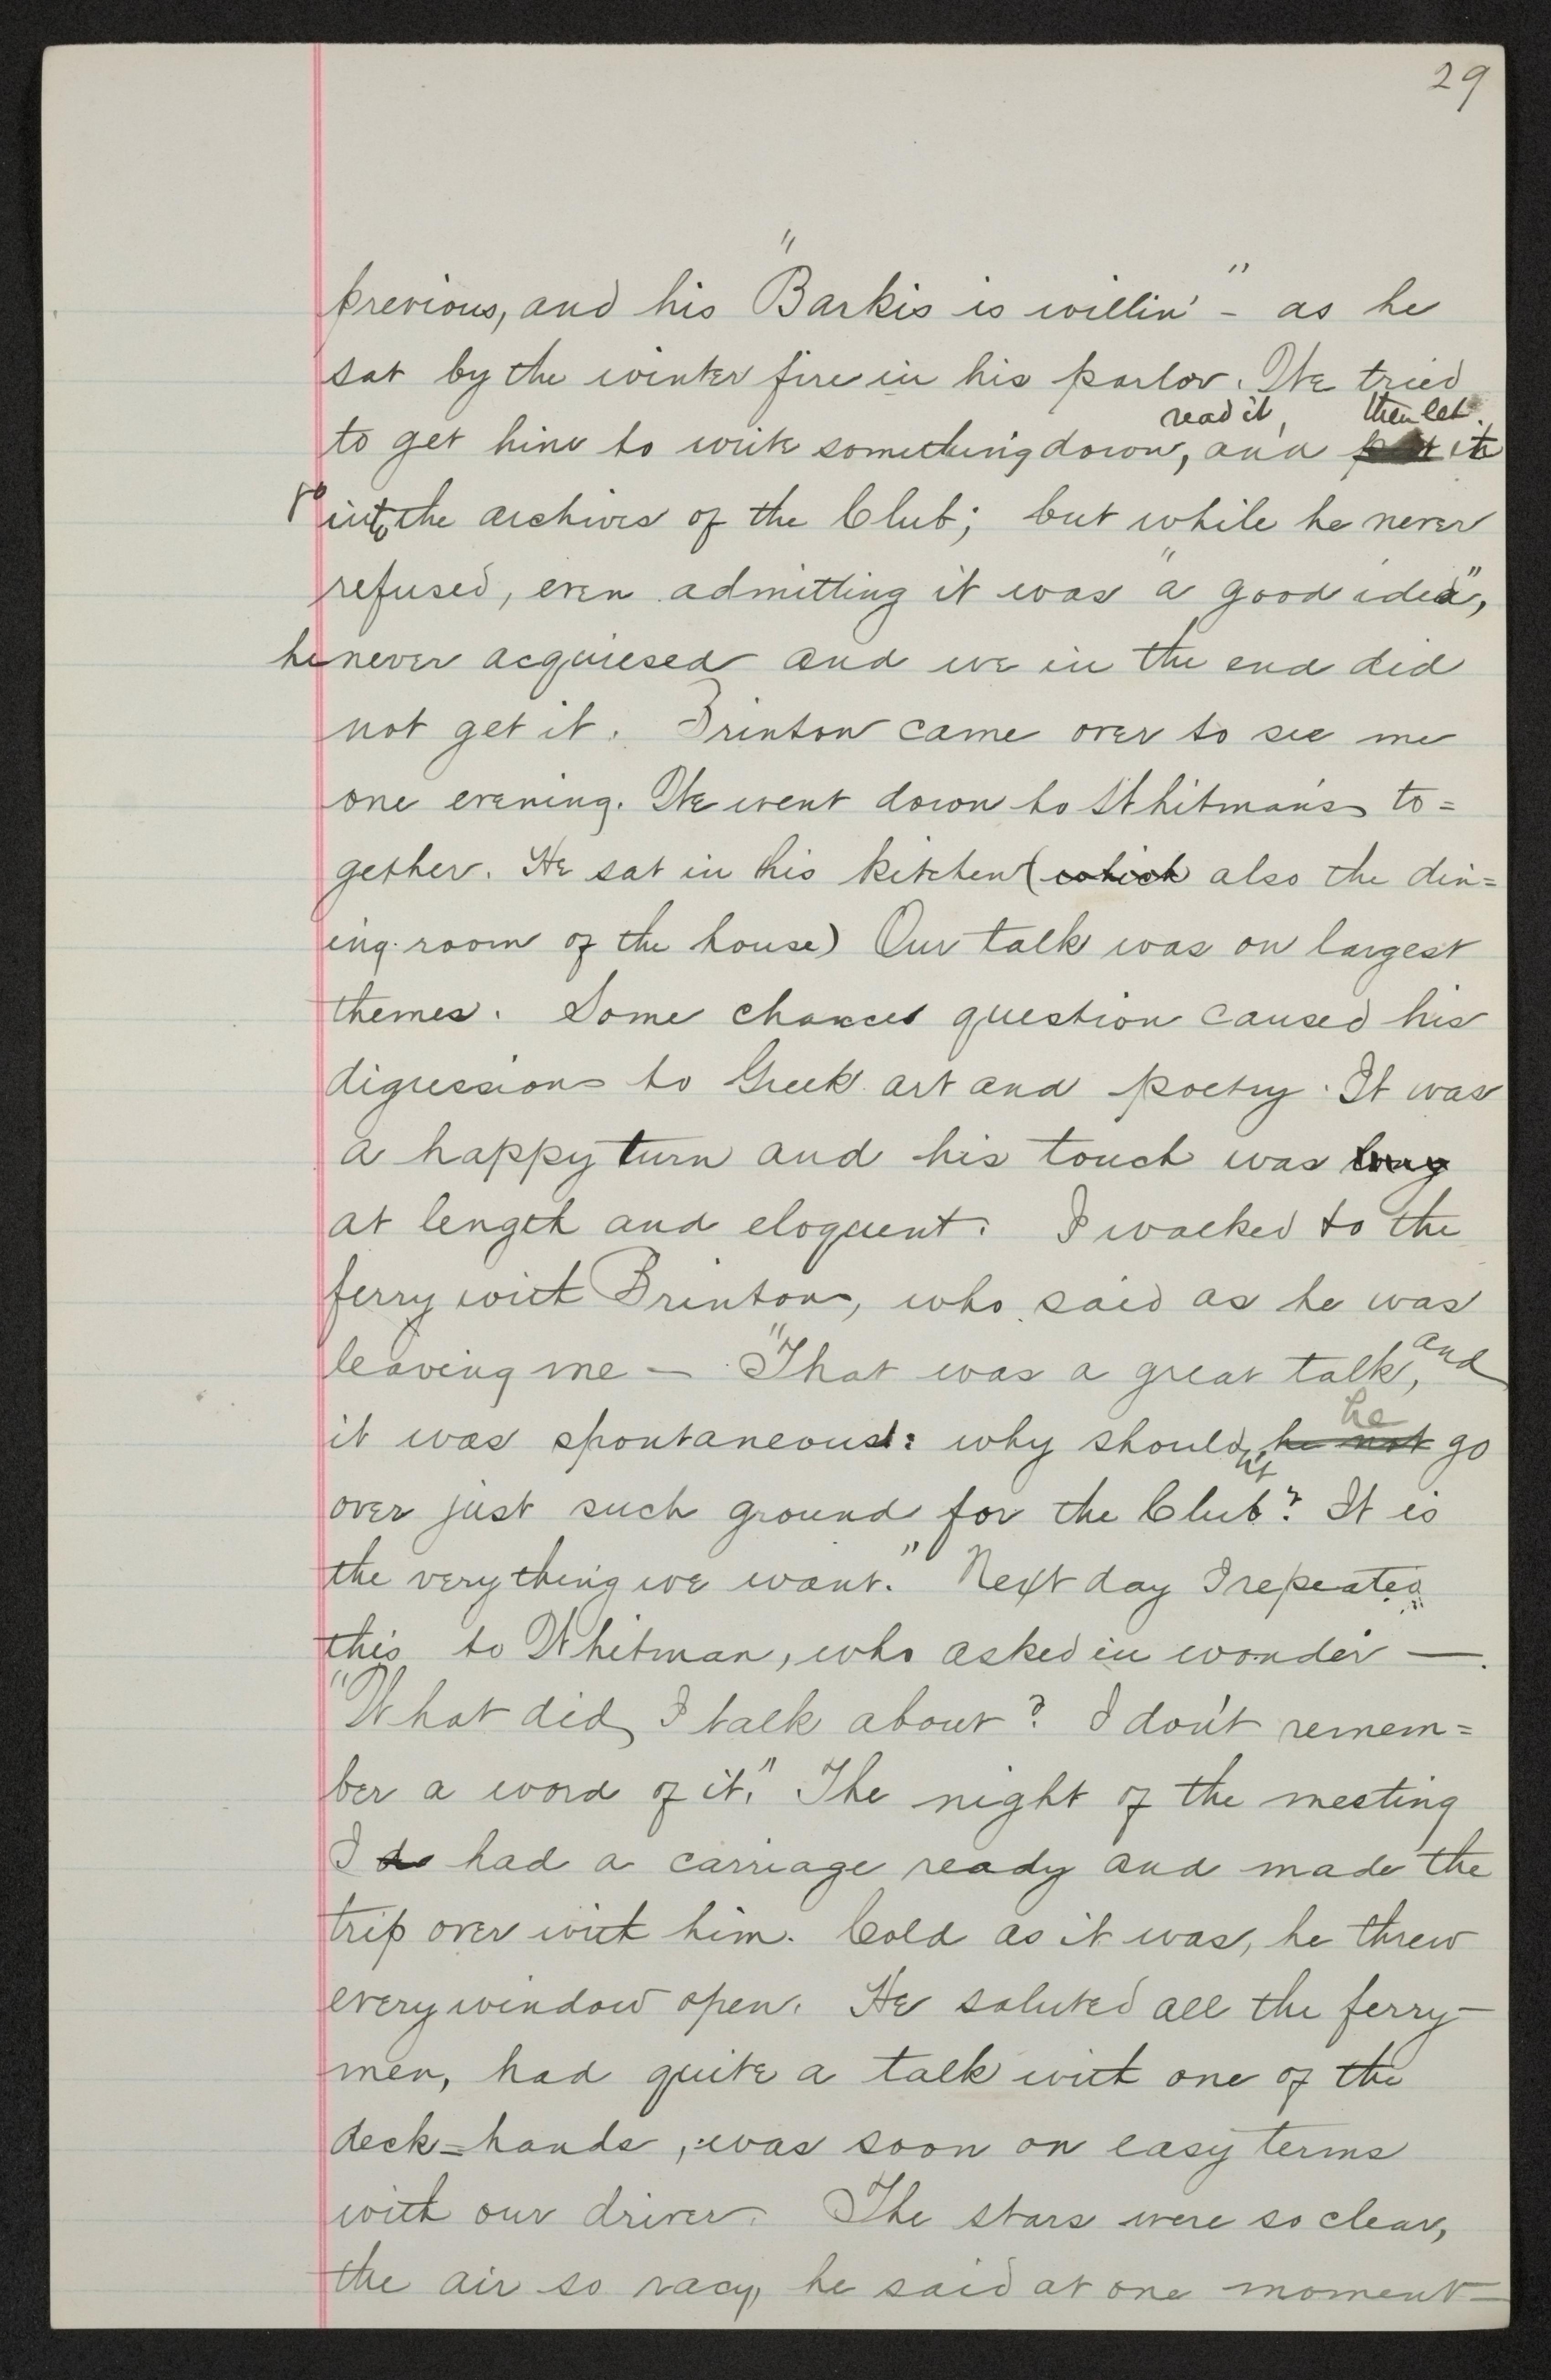 29
previous, and his "Barkis is willin'" - as he
sat by the winter fire in his parlor. We tried
read it, then let
to get him to write something down, and put it
go into the archives of the Club; but while he never
refused, even admitting it was "a good idea",
he never acquiesed and we in the end did
not get it. Brinton came over to see me
one evening. We went down to Whitman's to=
gether. He sat in his kitchen (which also the din=
ing-room of the house) Our talk was on largest
themes. Some chance question caused his
digressions to Greek art and poetry. It was
a happy turn and his touch was long
at length and eloquent. I walked to the
ferry with Brinton, who said as he was
leaving me - "That was a great talk, and
it was spontaneous: why shouldn't he not he go
over just such ground for the Club? It is
the very thing we want." Next day I repeated
this to Whitman, who asked in wonder —
"What did I talk about? I don't remem=
ber a word of it." The night of the meeting
I had a carriage ready and made the
trip over with him. Cold as it was, he threw
every window open. He saluted all the ferry-
men, had quite a talk with one of the
deck=hands, was soon on easy terms
with our driver. The stars were so clear,
the air so racy, he said at one moment-